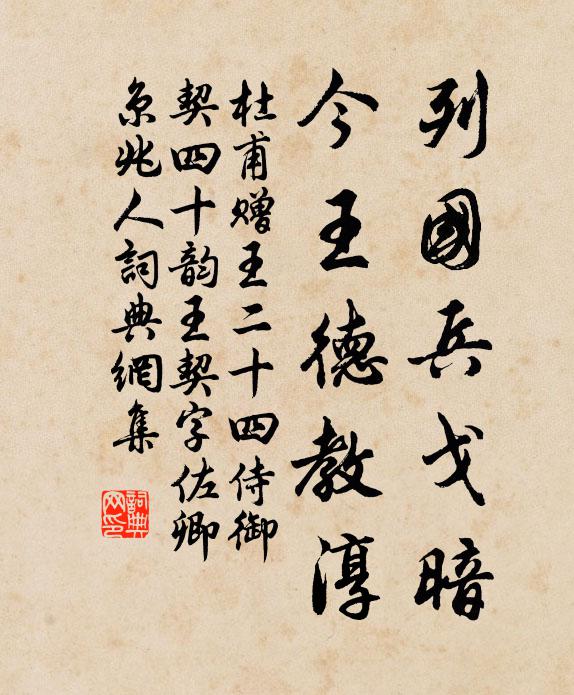 列國兵戈暗
今王德教淳
杜甫赠王二十四侍御
契四十韵王契字佐卿
京兆人詞典網集
詞典网印